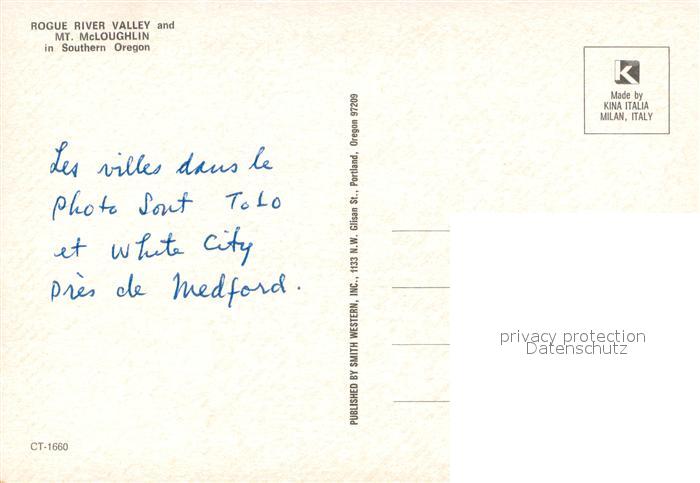 ROGUE RIVER VALLEY and
MT. McLOUGHLIN
in Southern Oregon
Les villes dans le
photo sont ToLo
et White City
près de Medford.
CT-1660
PUBLISHED BY SMITH WESTERN, INC., 1133 N.W. Glisan St., Portland, Oregon 97209
K
Made by
KINA ITALIA
MILAN, ITALY
privacy protection
Datenschutz